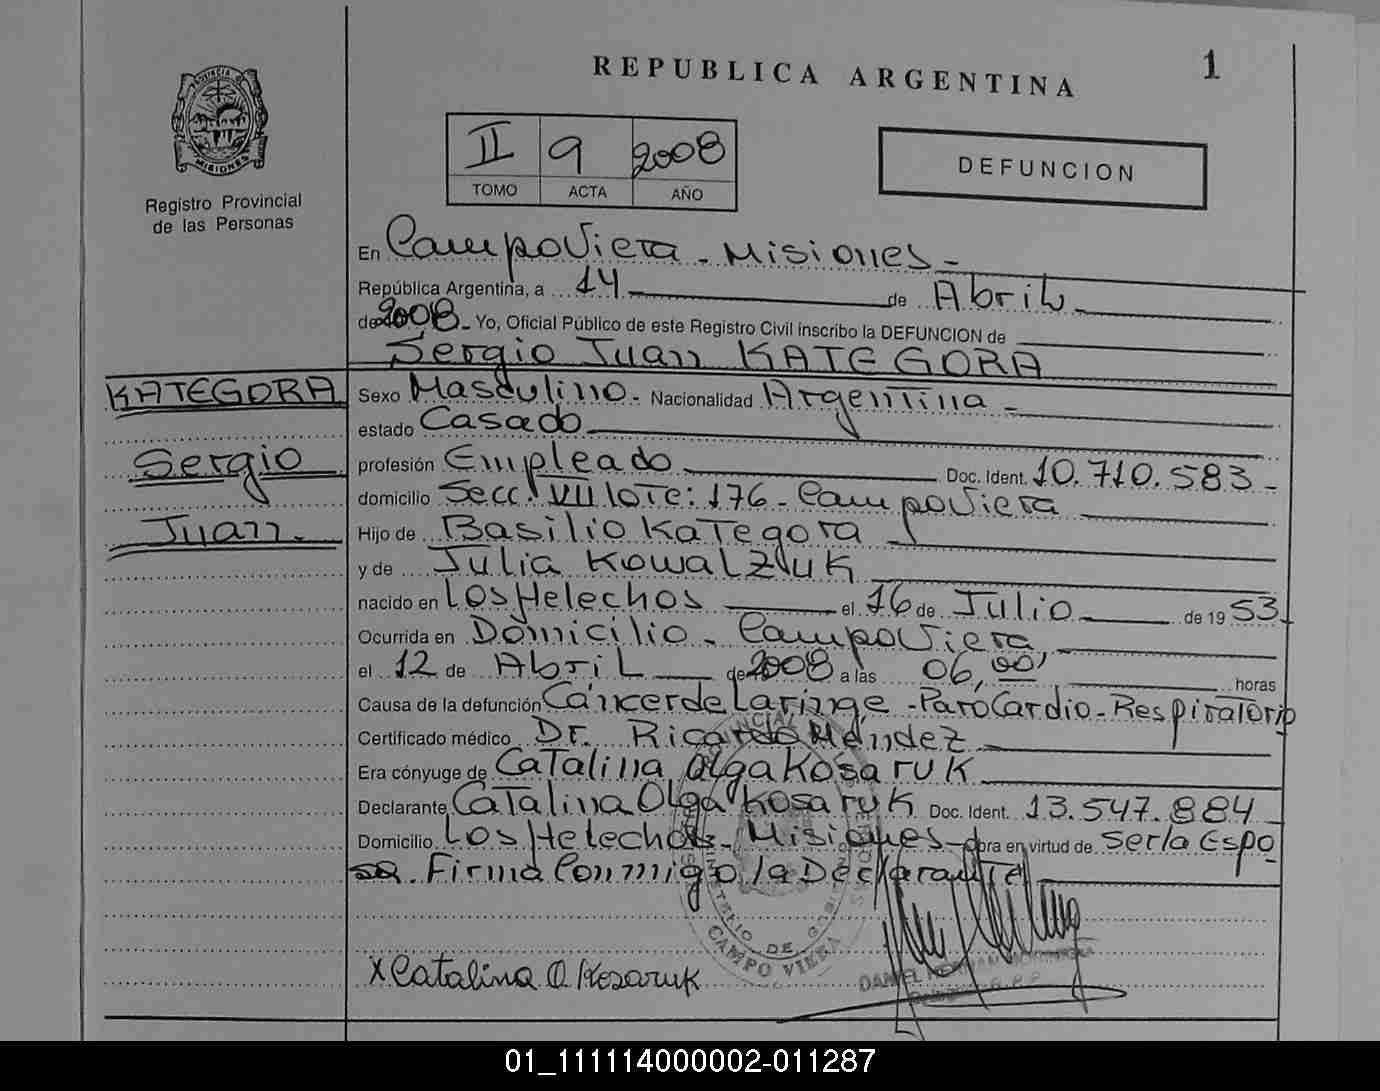 REPUBLICA ARGENTINA
1
PROVINCIA DE
MISIONES
Registro Provincial
de las Personas
II 9 2008
TOMO ACTA AÑO
DEFUNCION
En Campo Viera - Misiones -
República Argentina, a 14 de Abril
de 2008 - Yo, Oficial Público de este Registro Civil inscribo la DEFUNCION de
Sergio Juan KATEGORA
KATEGORA
Sergio
Juan.
Sexo Masculino - Nacionalidad Argentina -
estado Casado
profesión Empleado Doc. Ident. 10.710.583 -
domicilio Secc. VII Lote: 176 - Campo Viera
Hijo de Basilio Kategora
y de Julia Kowalzuk
nacido en Los Helechos el 16 de Julio de 19 53
Ocurrida en Domicilio - Campo Viera
el 12 de Abril de 2008 a las 06,00' horas
Causa de la defunción Cáncer de Laringe - Paro Cardio - Respiratorio
Certificado médico Dr. Ricardo Méndez
Era cónyuge de Catalina Olga Kosaruk
Declarante Catalina Olga Kosaruk Doc. Ident. 13.547.884
Domicilio Los Helechos - Misiones - obra en virtud de Ser la Espo
sa. Firma Conmigo la Declarante
MINISTERIO DE GOBIERNO
CAMPO VIERA
X Catalina O. Kosaruk
01_111114000002-011287